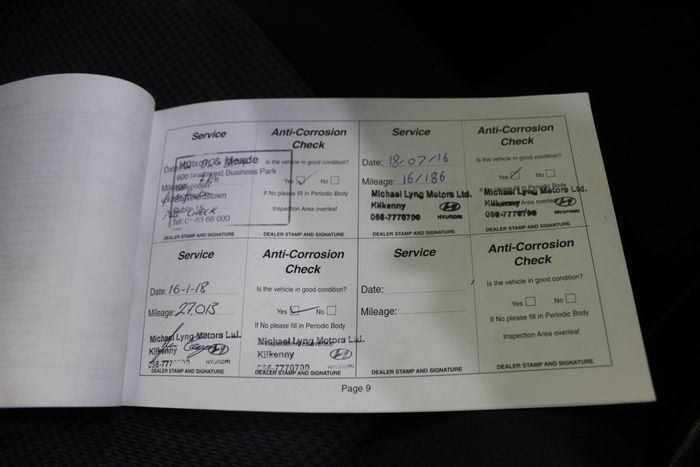 Service
Date:
Mileage:
& Meade
600 Northwest Business Park
Tel: 01-83 66 000
CHECK
DEALER STAMP AND SIGNATURE
Anti-Corrosion
Check
Is the vehicle in good condition?
Yes ✓ No
If No please fill in Periodic Body
Inspection Area overleaf
DEALER STAMP AND SIGNATURE
Service
Date: 18/07/16
Mileage: 16/186
Michael Lyng Motors Ltd.
Kilkenny
056-7770700 HYUNDAI
DEALER STAMP AND SIGNATURE
Anti-Corrosion
Check
Is the vehicle in good condition?
Yes ✓ No
Michael Lyng Motors Ltd.
Kilkenny Area overleaf
056-7770700 HYUNDAI
DEALER STAMP AND SIGNATURE
Service
Date: 16-1-18
Mileage: 27013
Michael Lyng Motors Ltd.
Kilkenny
056-7770700 HYUNDAI
DEALER STAMP AND SIGNATURE
Anti-Corrosion
Check
Is the vehicle in good condition?
Yes ✓ No
If No please fill in Periodic Body
Michael Lyng Motors Ltd.
Kilkenny
056-7770700 HYUNDAI
DEALER STAMP AND SIGNATURE
Service
Date:
Mileage:
DEALER STAMP AND SIGNATURE
Anti-Corrosion
Check
Is the vehicle in good condition?
Yes No
If No please fill in Periodic Body
Inspection Area overleaf
DEALER STAMP AND SIGNATURE
Page 9